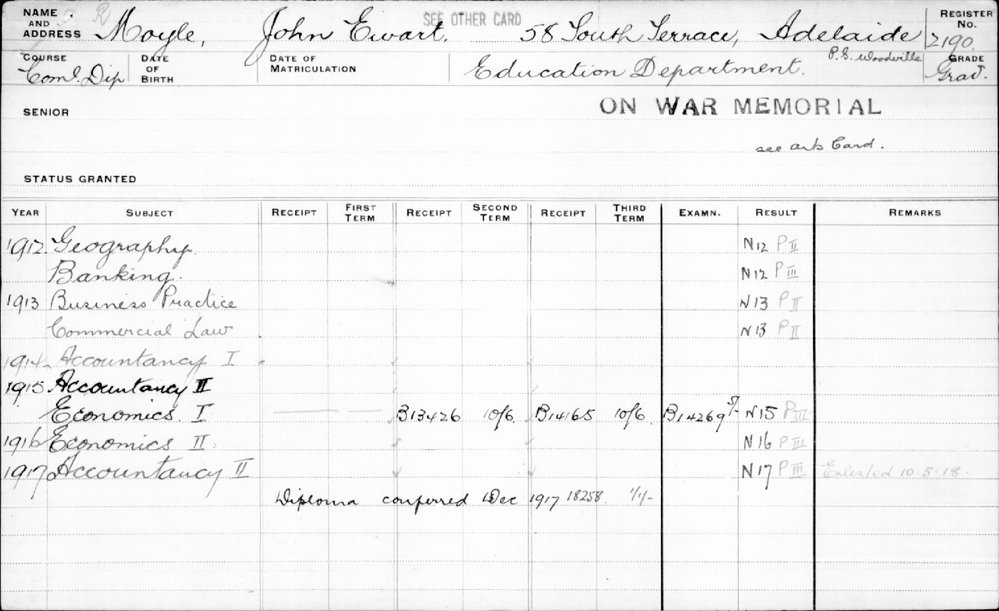 SEE OTHER CARD
NAME AND ADDRESS Moyle, John Ewart. 58 South Terrace, Adelaide REGISTER No. 2190.
P.S. Woodville
COURSE Coml. Dip DATE OF BIRTH DATE OF MATRICULATION Education Department. GRADE Grad.
SENIOR ON WAR MEMORIAL
see arts Card.
STATUS GRANTED
YEAR SUBJECT RECEIPT FIRST TERM RECEIPT SECOND TERM RECEIPT THIRD TERM EXAMN. RESULT REMARKS
1912. Geography. N12 P II
Banking. N12 P III
1913 Business Practice N13 P II
Commercial Law N13 P II
1914 Accountancy I
1915 Accountancy II
Economics. I B13426 10/6. B14165 10/6. B14269 5/- N15 P III
1916 Economics II. N16 P III
1917 Accountancy II N17 P III Enlisted 10.5.18.
Diploma conferred Dec 1917 18258. 1/1/-